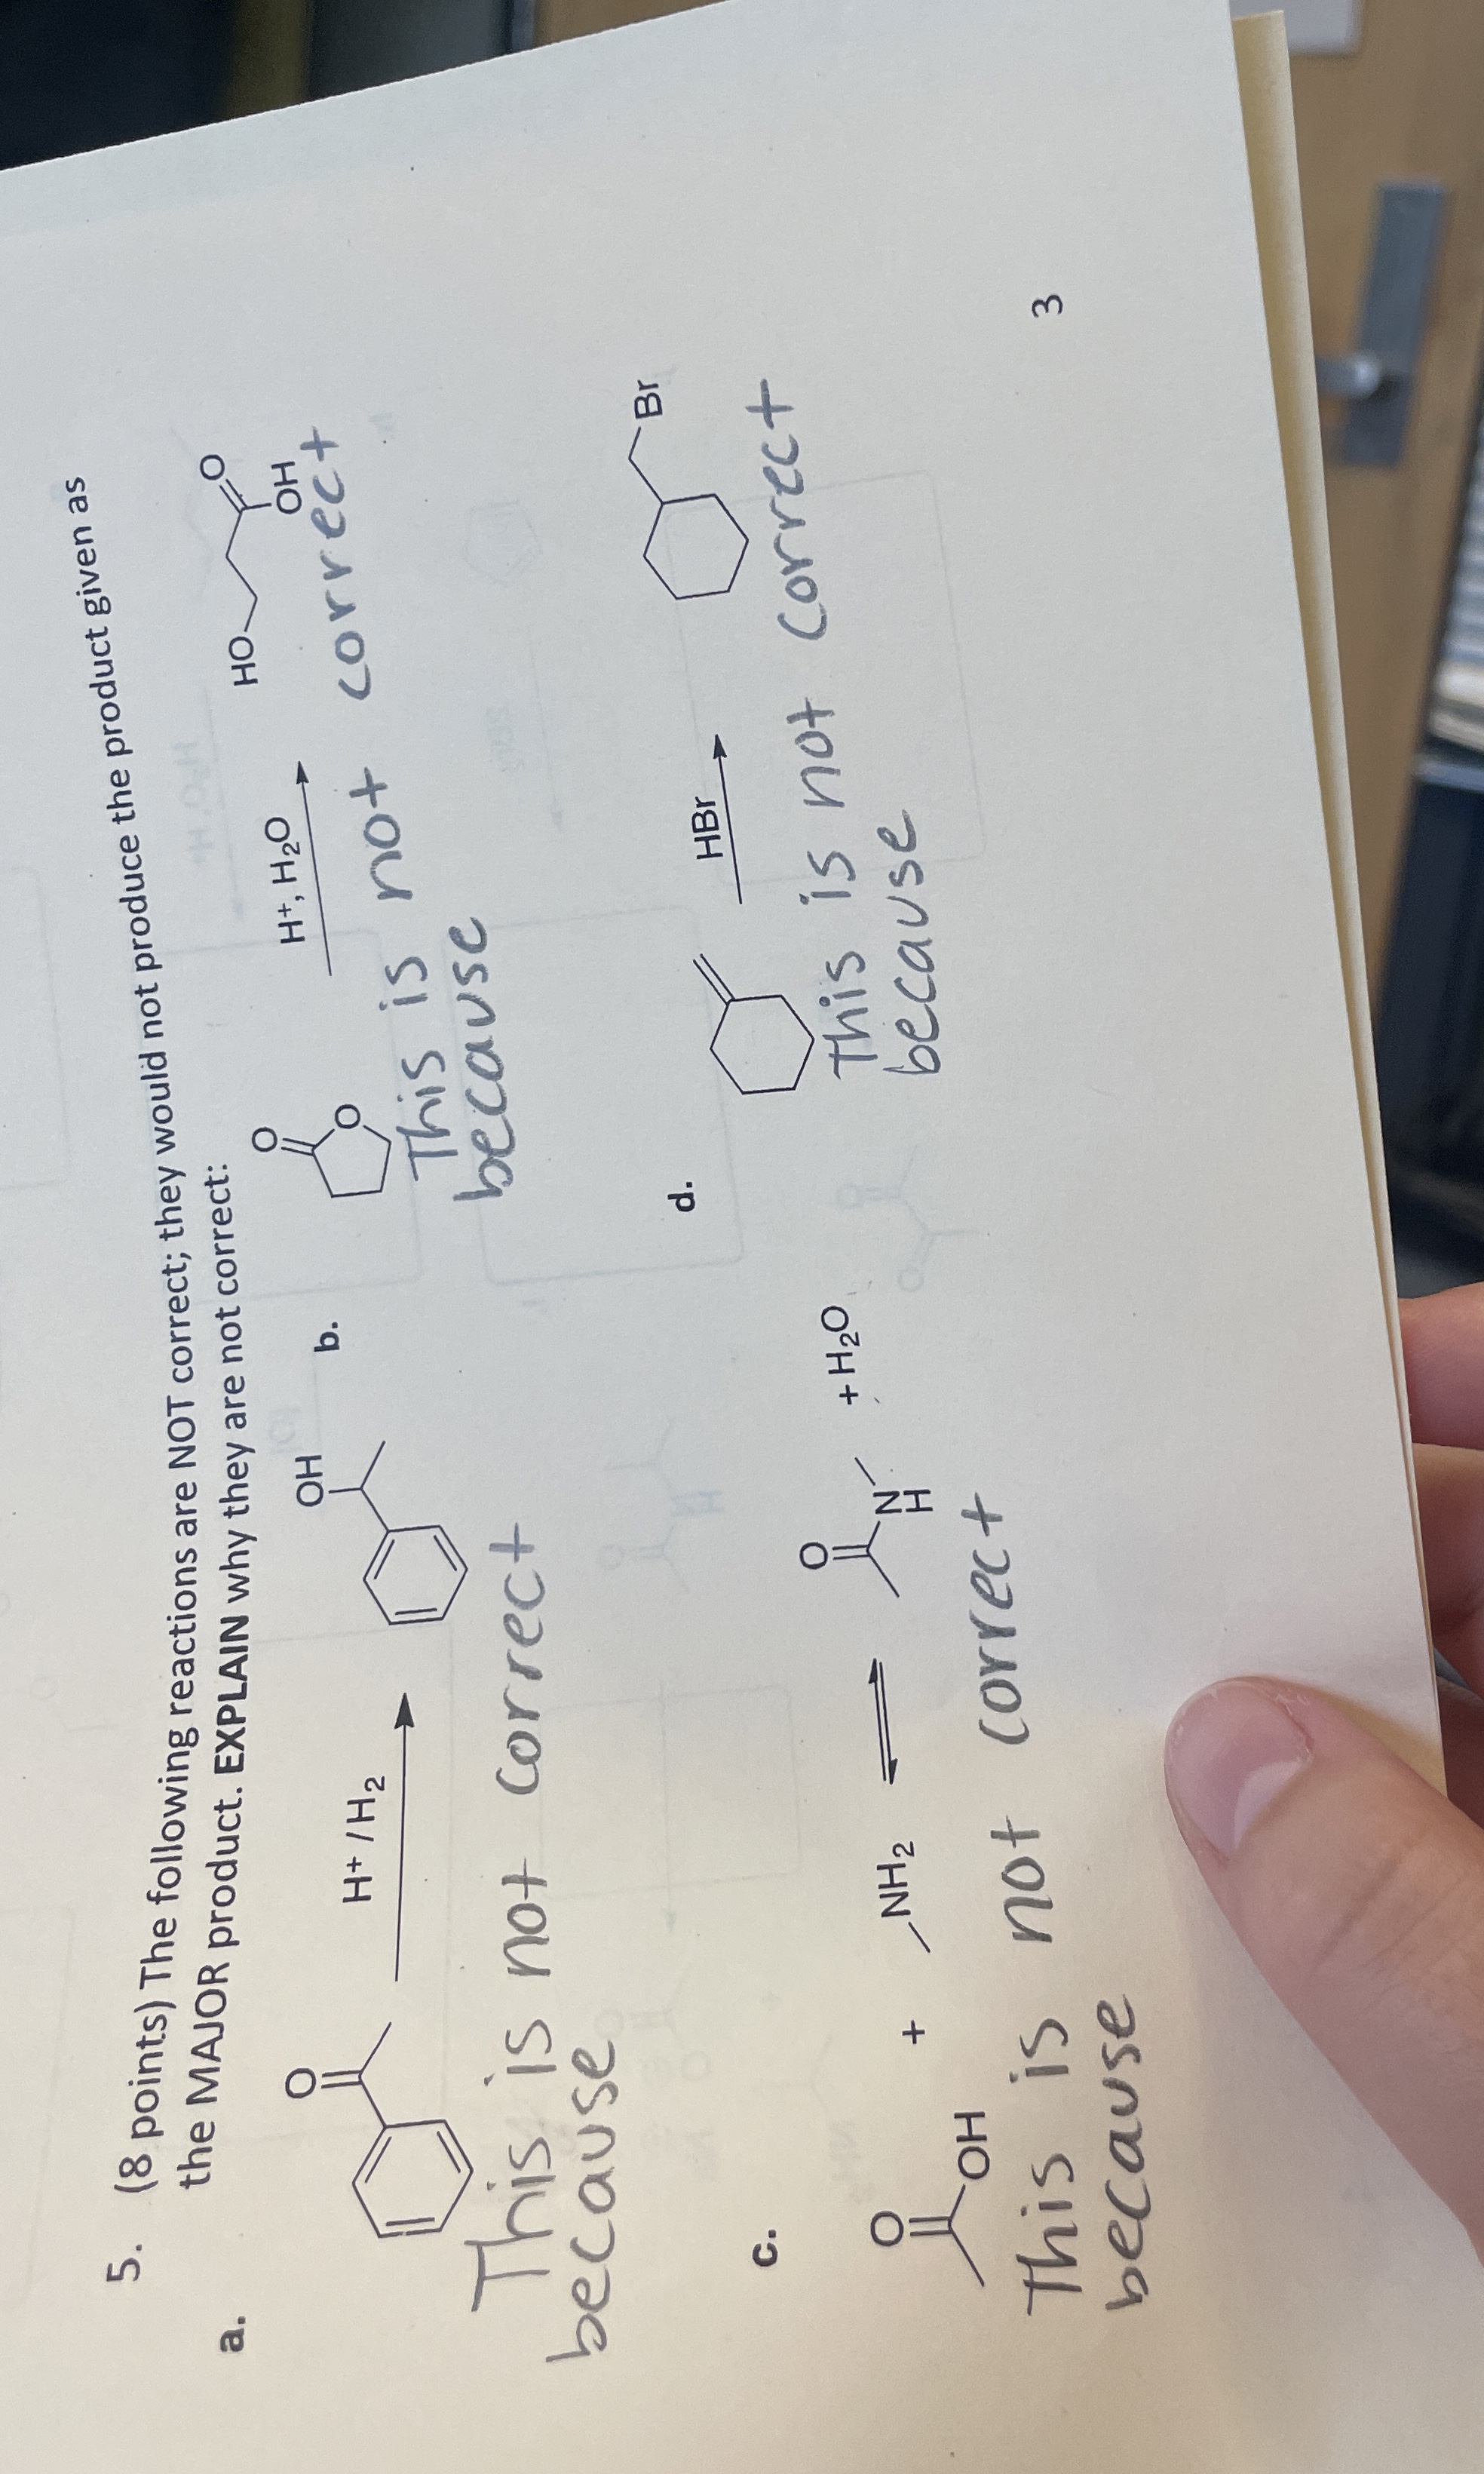 5. (8 points) The following reactions are NOT correct; they would not produce the product given as
the MAJOR product. EXPLAIN why they are not correct:
a.
O
H⁺ / H₂
OH
This is not correct
because
b.
O
O
H⁺, H₂O
HO
O
OH
This is not correct
because
c.
O
OH
+
NH₂
O
N
H
+ H₂O
This is not correct
because
d.
HBr
Br
This is not correct
because
3